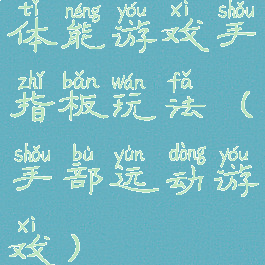 tǐ néng yóu xì shǒu
体能游戏手
zhǐ bǎn wán fǎ
指板玩法（
shǒu bù yùn dòng yóu
手部运动游
xì
戏）